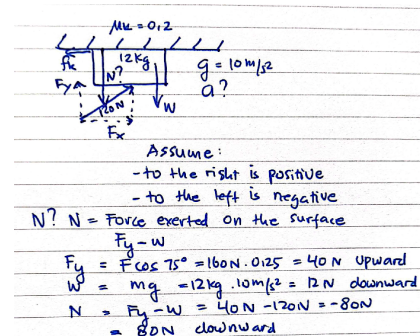 μk = 0,2
fk
12kg
N?
g = 10 m/s²
Fy
a?
120N
W
Fx
Assume:
- to the right is positive
- to the left is negative
N? N = Force exerted on the surface
Fy - w
Fy = F cos 75° = 160N . 0,25 = 40 N upward
W = mg = 12kg . 10 m/s² = 12 N downward
N = Fy - W = 40N - 120N = -80N
= 80N downward